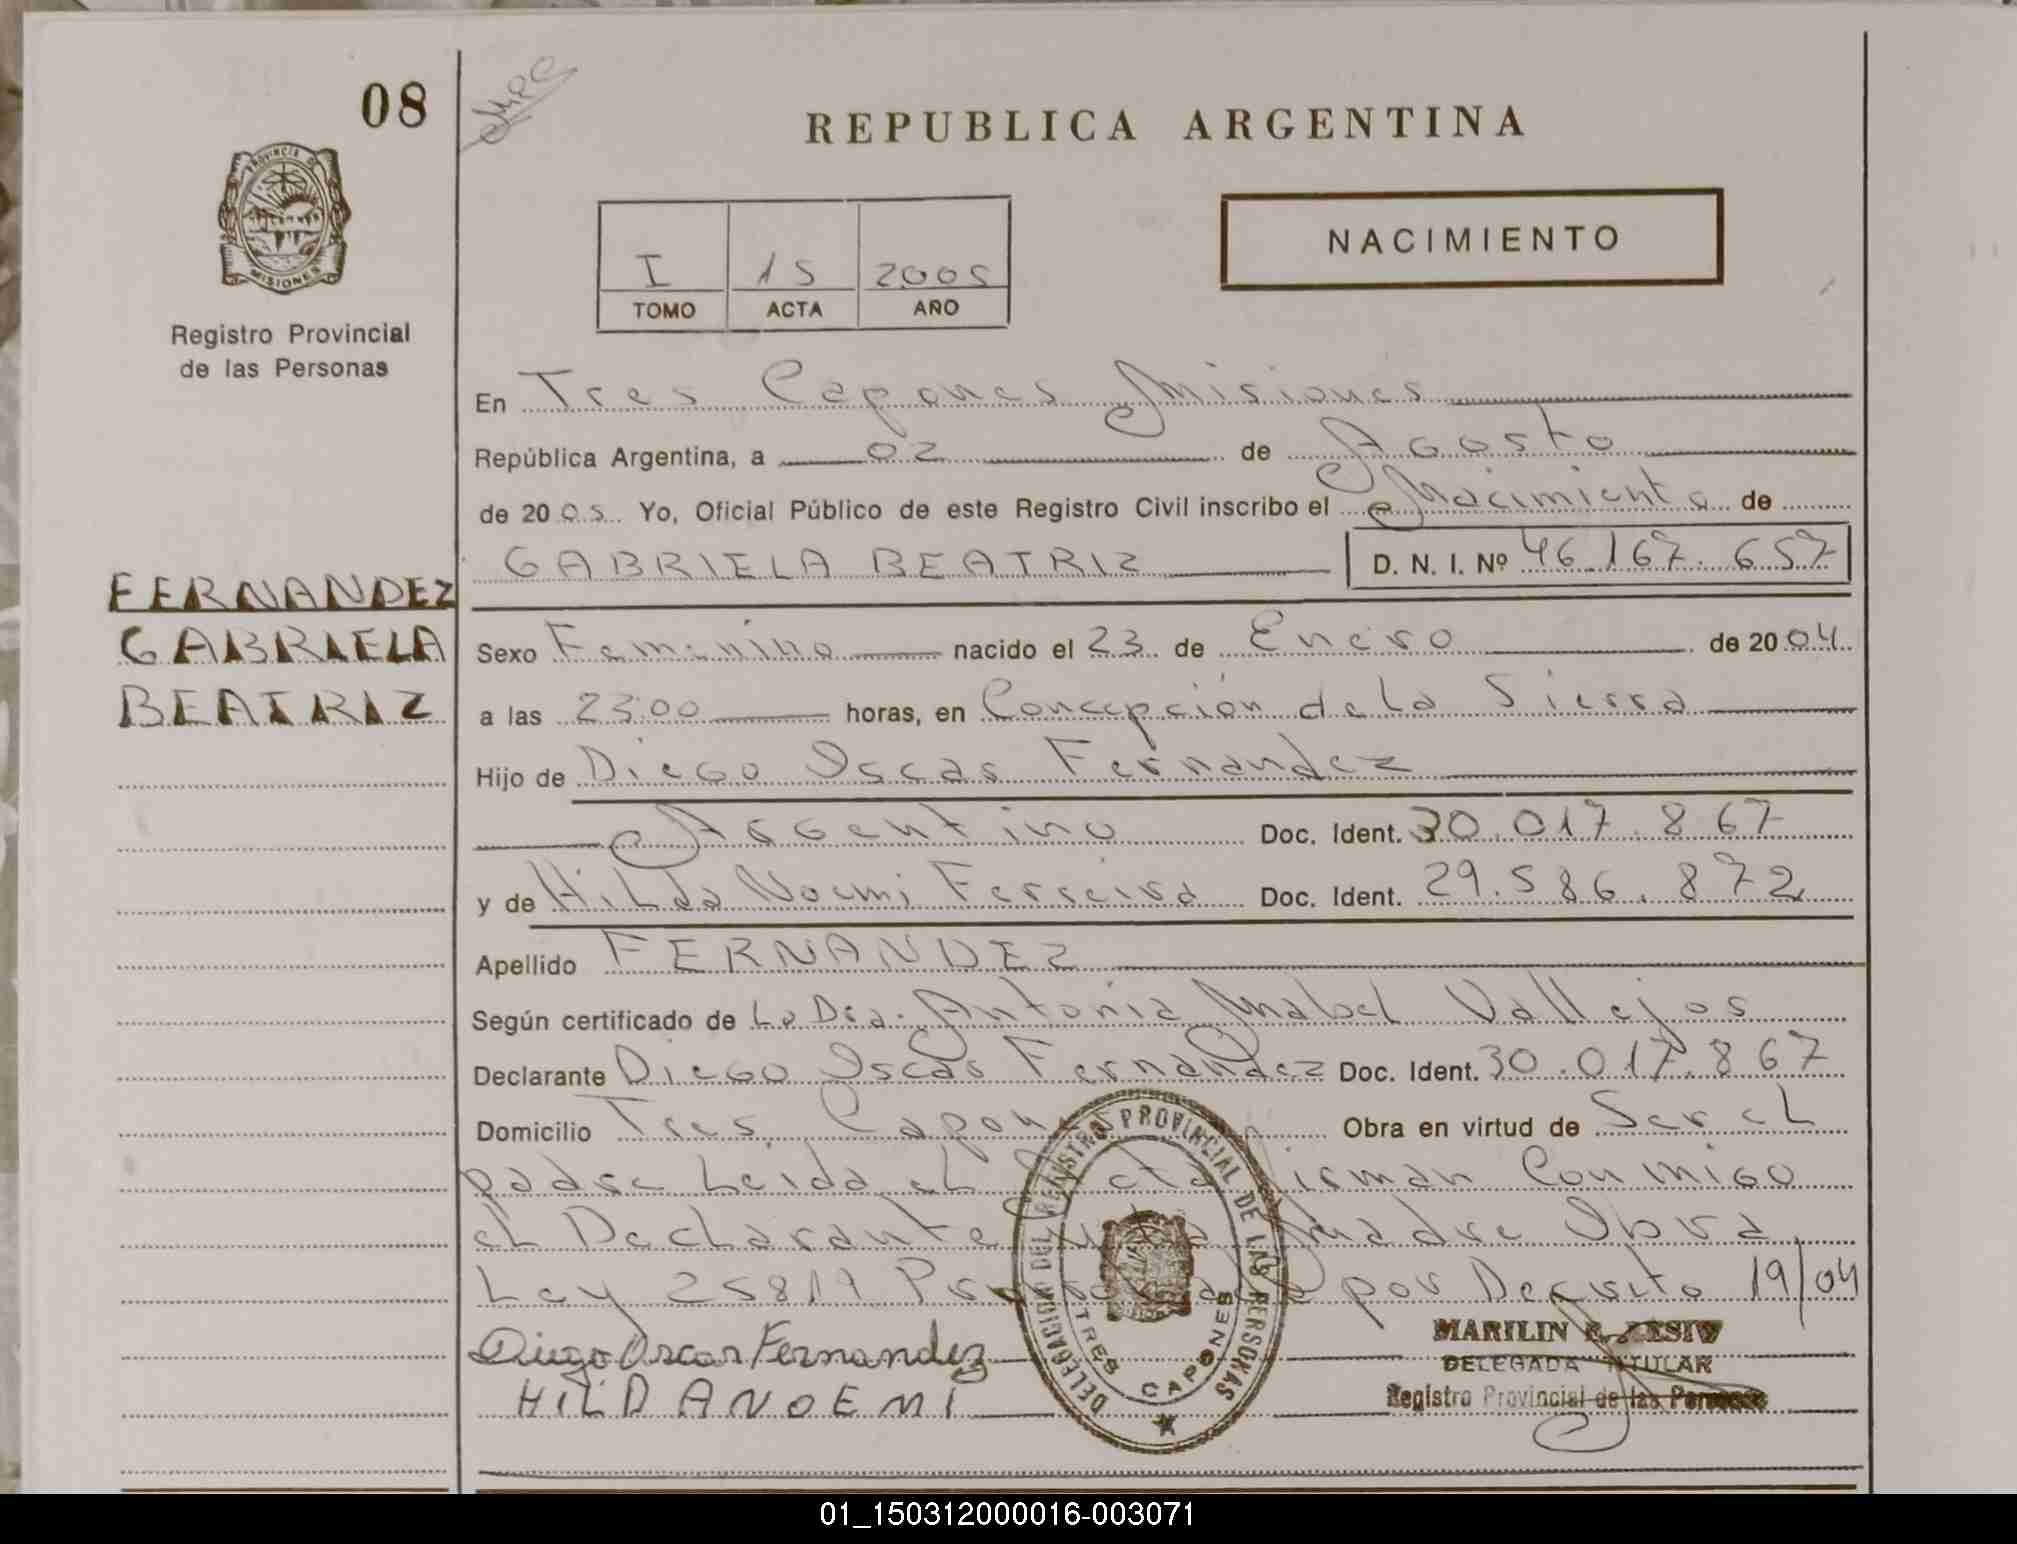 08
REPUBLICA ARGENTINA
PROVINCIA DE
MISIONES
Registro Provincial
de las Personas
I 15 2005
TOMO ACTA AÑO
NACIMIENTO
En Tres Capones Misiones
República Argentina, a 02 de Agosto
de 2005 Yo, Oficial Público de este Registro Civil inscribo el Nacimiento de
GABRIELA BEATRIZ D. N. I. Nº 46.167.657
FERNANDEZ
GABRIELA
BEATRIZ
Sexo Femenino nacido el 23 de Enero de 2004
a las 23:00 horas, en Concepción de la Sierra
Hijo de Diego Oscar Fernandez
Argentino Doc. Ident. 30.017.867
y de Hilda Noemi Ferreira Doc. Ident. 29.586.872
Apellido FERNANDEZ
Según certificado de La Dra. Antonia Mabel Vallejos
Declarante Diego Oscar Fernandez Doc. Ident. 30.017.867
Domicilio Tres Capon Obra en virtud de Ser el
padre Leida el Acta Firman Conmigo
el Declarante y la Madre Obra
Ley 25819 por Decreto 19/04
Diego Oscar Fernandez
HILDA NOEMI
DELEGACION DEL REGISTRO PROVINCIAL DE LAS PERSONAS
TRES CAPONES
MARILIN
DELEGADA TITULAR
Registro Provincial de las Personas
01_150312000016-003071